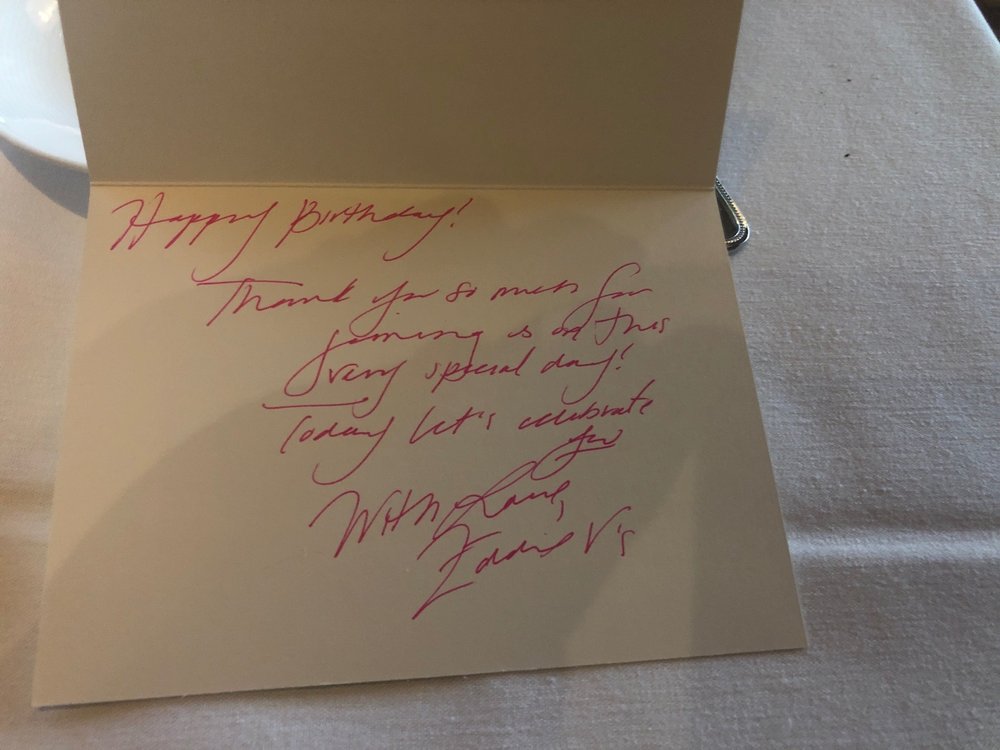 Happy Birthday!
Thank you so much for
joining us on this
very special day!
Today let's celebrate
you
With Love,
Eddie V's